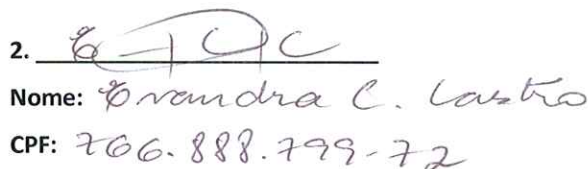 2.
Nome: Evandra C. Castro
CPF: 766.888.799-72